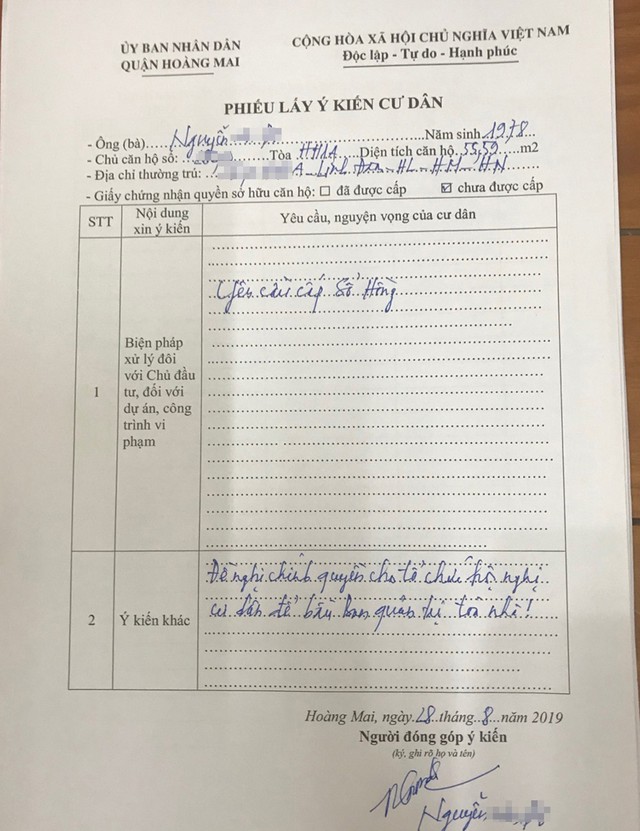 ỦY BAN NHÂN DÂN
QUẬN HOÀNG MAI
CỘNG HÒA XÃ HỘI CHỦ NGHĨA VIỆT NAM
Độc lập - Tự do - Hạnh phúc
PHIẾU LẤY Ý KIẾN CƯ DÂN
- Ông (bà) Nguyễn Năm sinh 1978
- Chủ căn hộ số: Tòa HH1A Diện tích căn hộ 55,59 m2
- Địa chỉ thường trú: A - Linh Đàm - HL - HM - HN
- Giấy chứng nhận quyền sở hữu căn hộ: ☐ đã được cấp ☑ chưa được cấp
STT
Nội dung
xin ý kiến
Yêu cầu, nguyện vọng của cư dân
1
Biện pháp
xử lý đôi
với Chủ đầu
tư, đối với
dự án, công
trình vi
phạm
Yêu cầu cấp Sổ Hồng
2
Ý kiến khác
Đề nghị chính quyền cho tổ chức hội nghị
cư dân để bầu ban quản trị toà nhà!
Hoàng Mai, ngày 28 tháng 8 năm 2019
Người đóng góp ý kiến
(ký, ghi rõ họ và tên)
Nguyễn